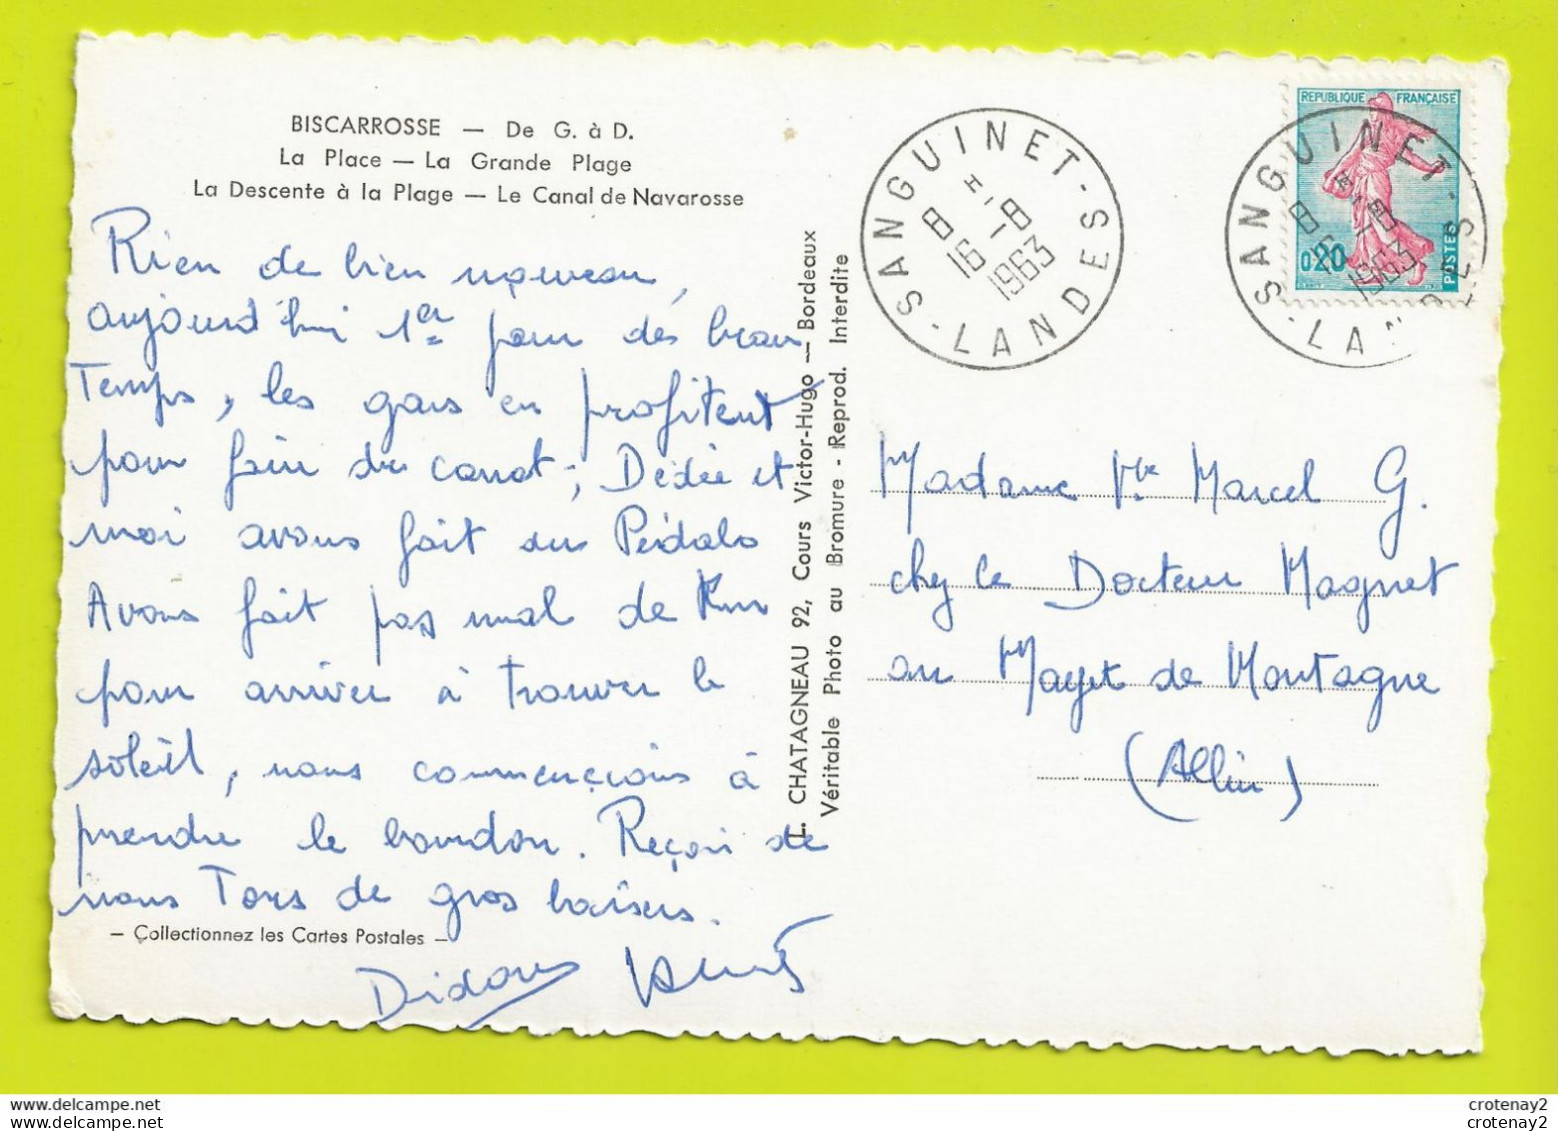 BISCARROSSE — De G. à D.
La Place — La Grande Plage
La Descente à la Plage — Le Canal de Navarosse
Rien de bien nouveau,
aujourd'hui 1er jour des beau
Temps, les gars en profitent
pour faire du canot; Dédée et
moi avons fait du Pédalo
Avons fait pas mal de Km
pour arriver à trouver le
soleil, nous commençions à
prendre le bourdon. Reçoi de
nous Tors de gros baisers.
— Collectionnez les Cartes Postales —
Didou
L. CHATAGNEAU 92, Cours Victor-Hugo — Bordeaux
Véritable Photo au Bromure - Reprod. Interdite
SANGUINET - LANDES
8 H
16 -8
1963
REPUBLIQUE FRANÇAISE
0,20
POSTES
SANGUINET - LANDES
8 H
16 -8
1963
Madame Vve Marcel G.
chez le Docteur Magnet
au Mayet de Montagne
(Allier)
crotenay2
crotenay2
crotenay2
crotenay2